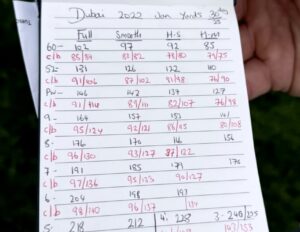 Dubai 2022 Jan Yards 30 day
Full Smooth H.S
60- 102 97 92 85
c/b 85/89 82/82 78/80 74/75
52- 131 126 122 110
c/b 91/106 87/102 91/98 76/90
PW- 146 142 137 127
c/b 91/114 82/107 76/98
9- 164 157 152 141
c/b 95/124 92/121 80/108
8- 176 170 156
c/b 96/130 93/127 87/122
7- 191 185 179 170
c/b 97/136 95/133 90/127
6- 204 198 193
c/b 98/140 96/137
5- 218 212 4. 3-